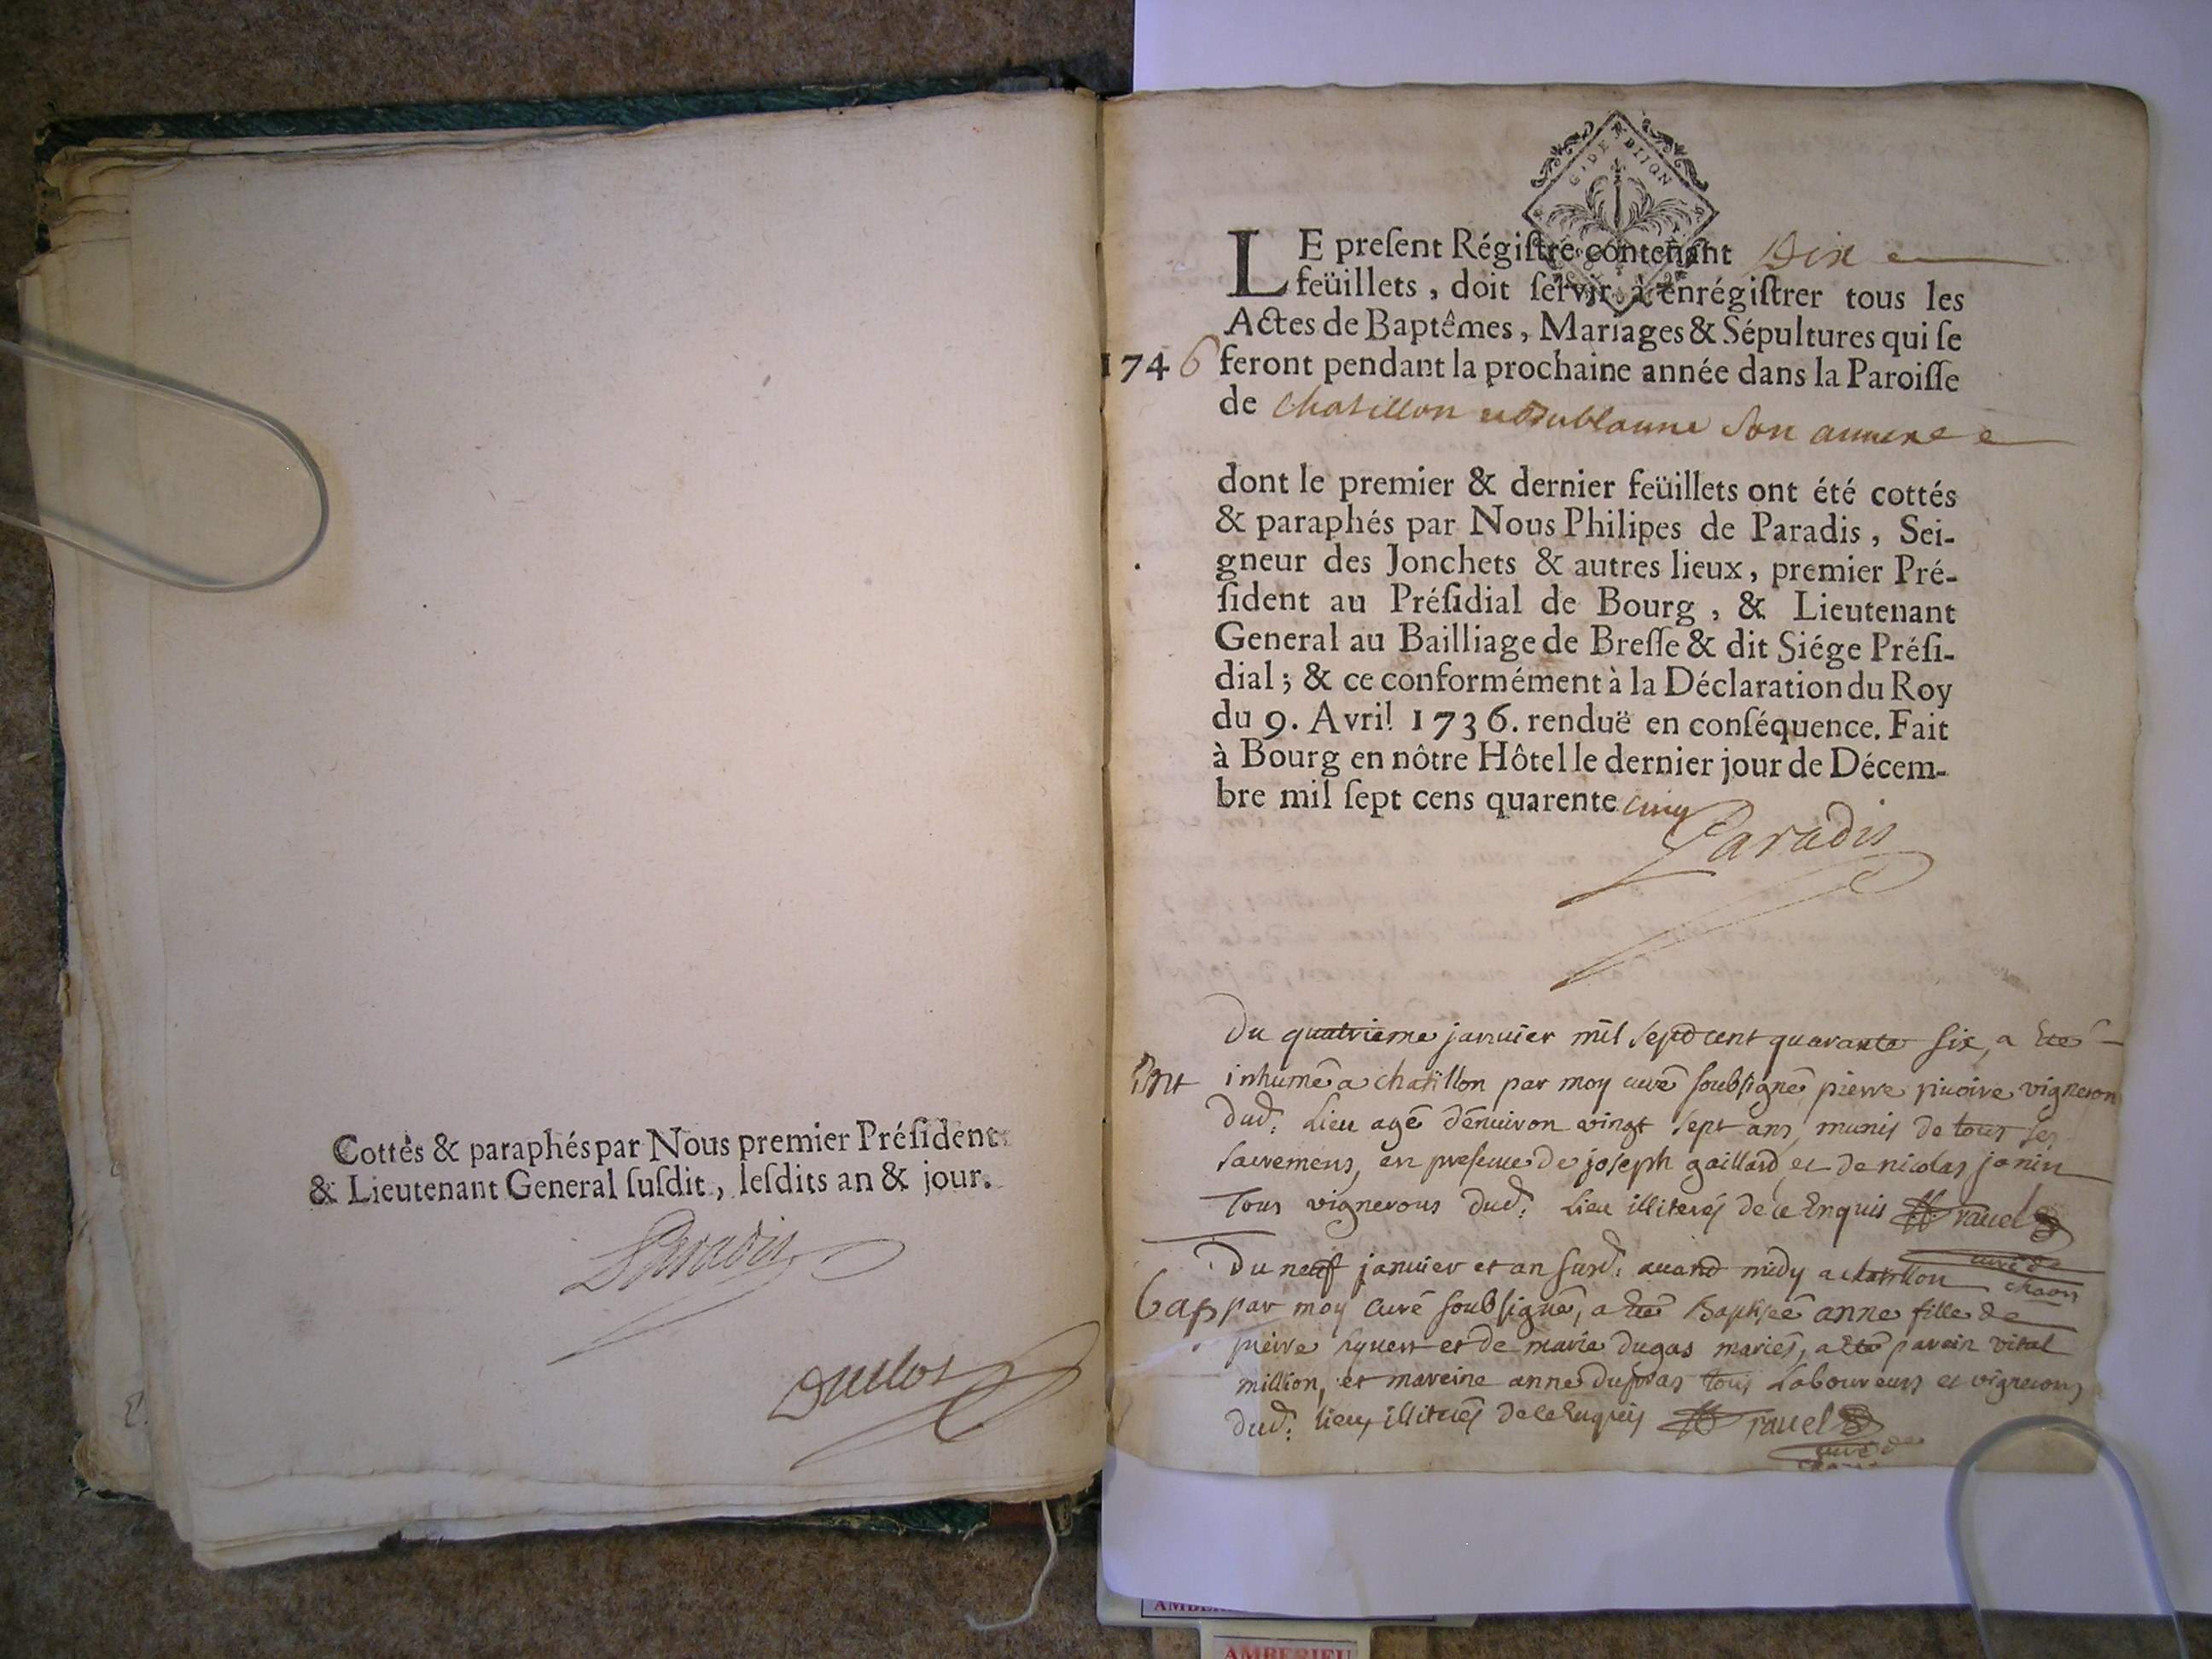 Cottés & paraphés par Nous premier Préſident
& Lieutenant General ſuſdit, leſdits an & jour.
Paradis
Duclos
G. DE DIJON
LE preſent Régiſtre contenant Dix
feüillets, doit ſervir à enrégiſtrer tous les
Actes de Baptêmes, Mariages & Sépultures qui ſe
1746 feront pendant la prochaine année dans la Paroiſſe
de Chatillon et Dublanne son annexe
dont le premier & dernier feüillets ont été cottés
& paraphés par Nous Philipes de Paradis, Sei-
gneur des Jonchets & autres lieux, premier Pré-
ſident au Préſidial de Bourg, & Lieutenant
General au Bailliage de Breſſe & dit Siége Préſi-
dial; & ce conformément à la Déclaration du Roy
du 9. Avril 1736. renduë en conſéquence. Fait
à Bourg en nôtre Hôtel le dernier jour de Décem-
bre mil ſept cens quarente cinq
Paradis
Du quatrieme janvier mil sept cent quarante six, a eté
inhumé a chatillon par moy curé soubsigné pierre pivoire vigneron
dud: Lieu agé d'environ vingt sept ans, munis de tous ses
sacremens, en presence de joseph gaillard et de nicolas janin
Tous vignerons dud: Lieu illiterés de ce Enquis ravel
curé de
chaon
Du neuf janvier et an susd: avand midy a chatillon
bap par moy curé soubsigné, a eté Baptisée anne fille de
pierre et de marie dugas mariés, a eté parein vital
million, et mareine anne tous Laboureurs et vignerons
dud: lieu, illiterés de ce Enquis ravel
curé de